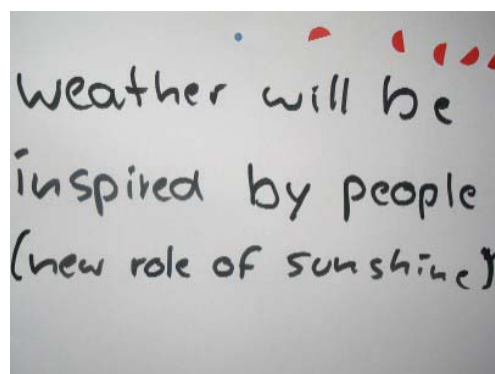 weather will be
inspired by people
(new role of sunshine)